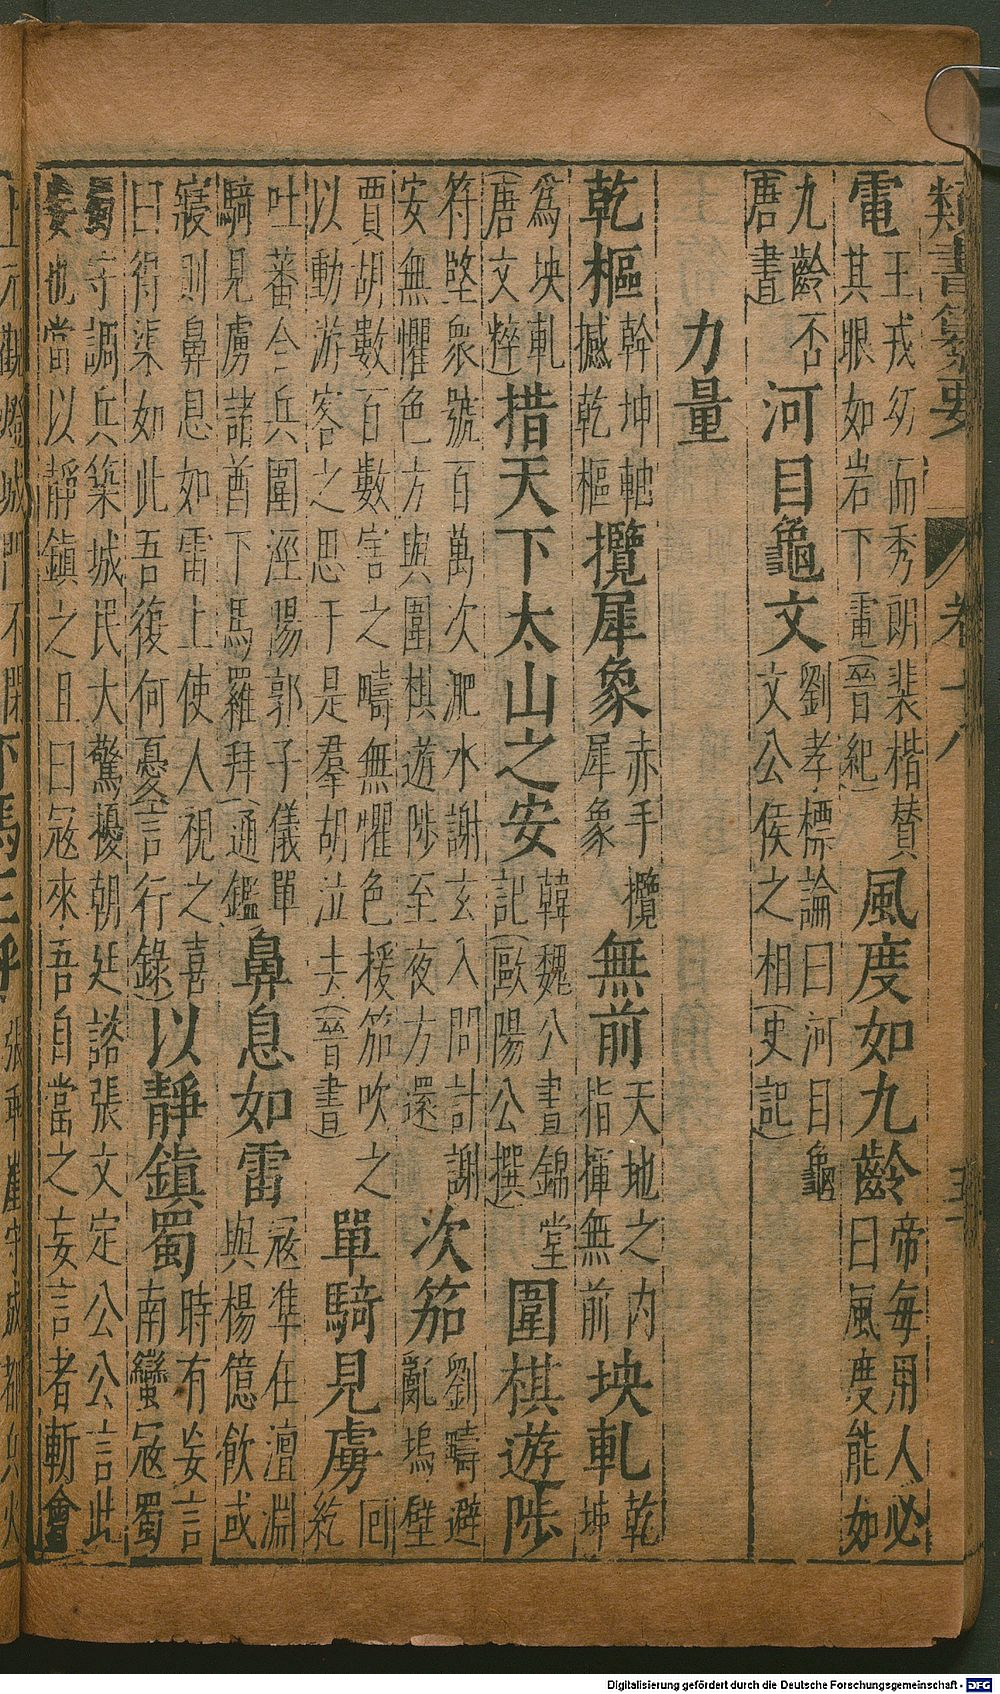 類書纂要 卷十八 五
電 王戎㓜而秀朗裴楷賛其眼如岩下電(晉紀) 風度如九齡 帝每用人必曰風度能如
九齡否(唐書) 河目龜文 劉孝標論曰河目龜文公侯之相(史記)
力量
乾樞 幹坤軸撼乾樞 攬犀象 赤手攬犀象 無前 天地之内指揮無前 坱軋 乾坤
為坱軋(唐文粹) 措天下太山之安 韓魏公晝錦堂記(歐陽公撰) 圍棋遊陟
符堅衆號百萬次淝水謝玄入問計謝安無懼色方與圍棋遊陟至夜方還 次笳 劉疇避亂塢壁
賈胡數百數害之疇無懼色援笳吹之以動游客之思于是羣胡泣去(晉書) 單騎見虜 回紇
吐蕃合兵圍涇陽郭子儀單騎見虜諸酋下馬羅拜(通鑑) 鼻息如雷 寇準在澶淵與楊億飲或
寢則鼻息如雷上使人視之喜曰得渠如此吾復何憂(言行錄) 以靜鎮蜀 時有妄言南蠻寇蜀
蜀守調兵築城民大驚擾朝廷諮張文定公公言此妄也當以靜鎮之且曰寇來吾自當之妄言者斬會
上元觀燈城門不閉 下馬三呼 張乖崖守成都兵火
Digitalisierung gefördert durch die Deutsche Forschungsgemeinschaft - DFG